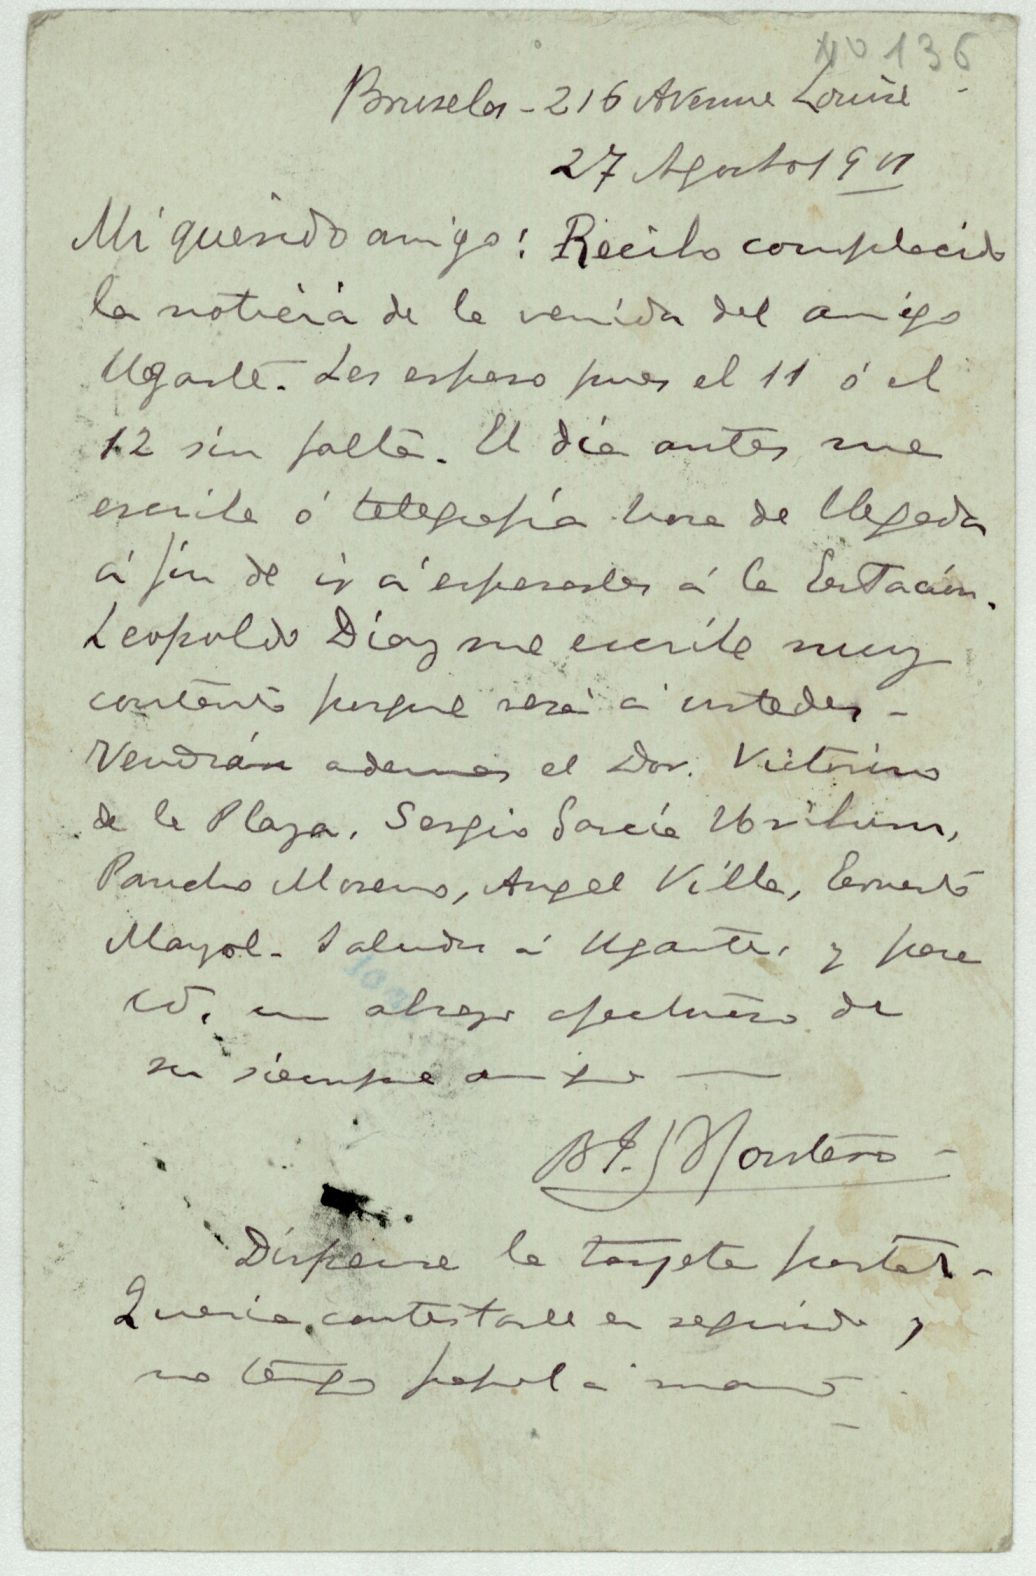 Nº 136
Bruselas - 216 Avenue Louise
27 Agosto 1901
Mi querido amigo: Recibo complacido
la noticia de la venida del amigo
Ugarte. Les espero pues el 11 ó el
12 sin falta. El día antes me
escribe ó telegrafía hora de llegada
á fin de ir á esperarles á la Estación.
Leopoldo Díaz me escribe muy
contento porque verá á ustedes -
Vendrán ademas el Dor. Victorino
de la Plaza, Sergio García Uriburu,
Pancho Moreno, Angel Villa, Ernesto
Mayol - Saludos á Ugarte, y para
Vd. un abrazo afectuoso de
su siempre amigo
Montero -
Dispense la tarjeta postal -
Queria contestarle en seguida y
no tengo papel á mano -